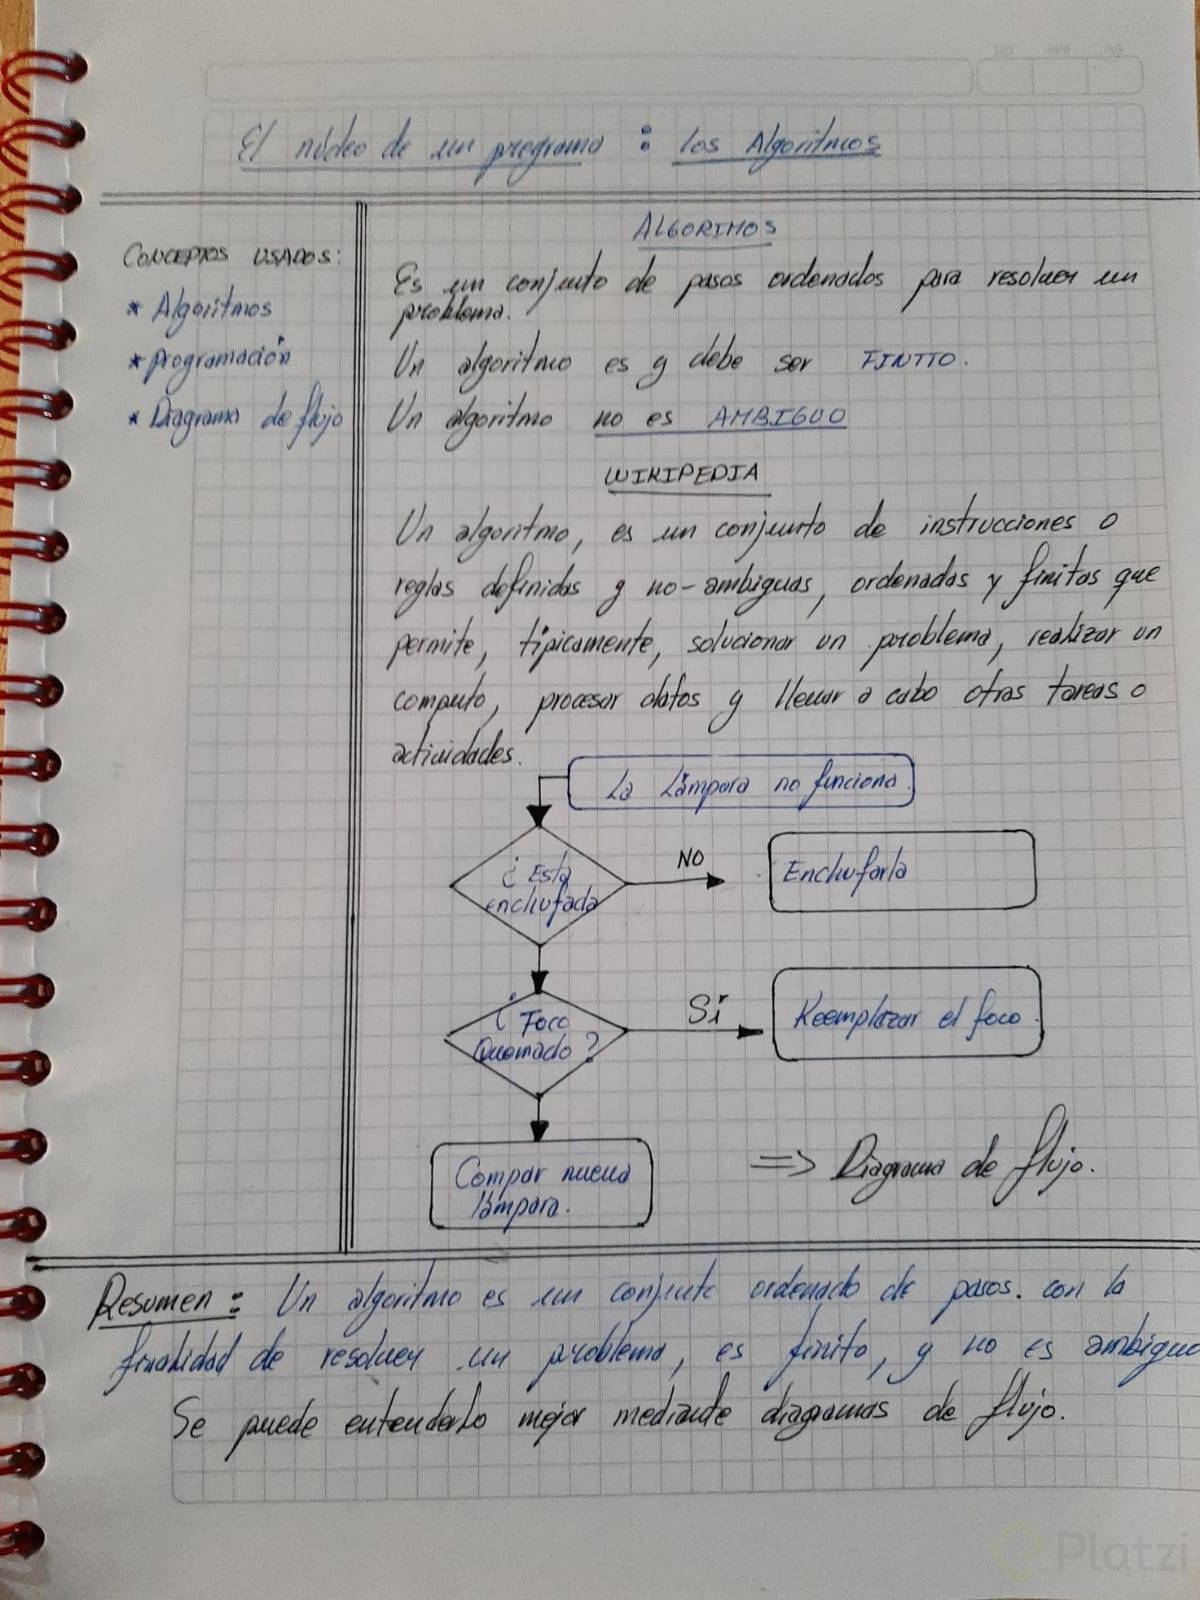 El núcleo de un programa : los Algoritmos
CONCEPTOS USADOS:
* Algoritmos
* Programación
* Diagrama de flujo
ALGORIMOS
Es un conjunto de pasos ordenados para resolver un
problema.
Un algoritmo es y debe ser FINITO.
Un algoritmo no es AMBIGUO
WIKIPEDIA
Un algoritmo, es un conjunto de instrucciones o
reglas definidas y no-ambiguas, ordenadas y finitas que
permite, típicamente, solucionar un problema, realizar un
computo, procesar datos y llevar a cabo otras tareas o
actividades.
La Lámpara no funciona.
¿Esta
enchufada
NO
Enchufarla
¿Foco
Quemado?
Sí
Reemplazar el foco.
Compar nueva
lámpara.
=> Diagrama de flujo.
Resumen: Un algoritmo es un conjunto ordenado de pasos. con la
finalidad de resolver un problema, es finito, y no es ambiguo
Se puede entenderlo mejor mediante diagramas de flujo.
Platzi